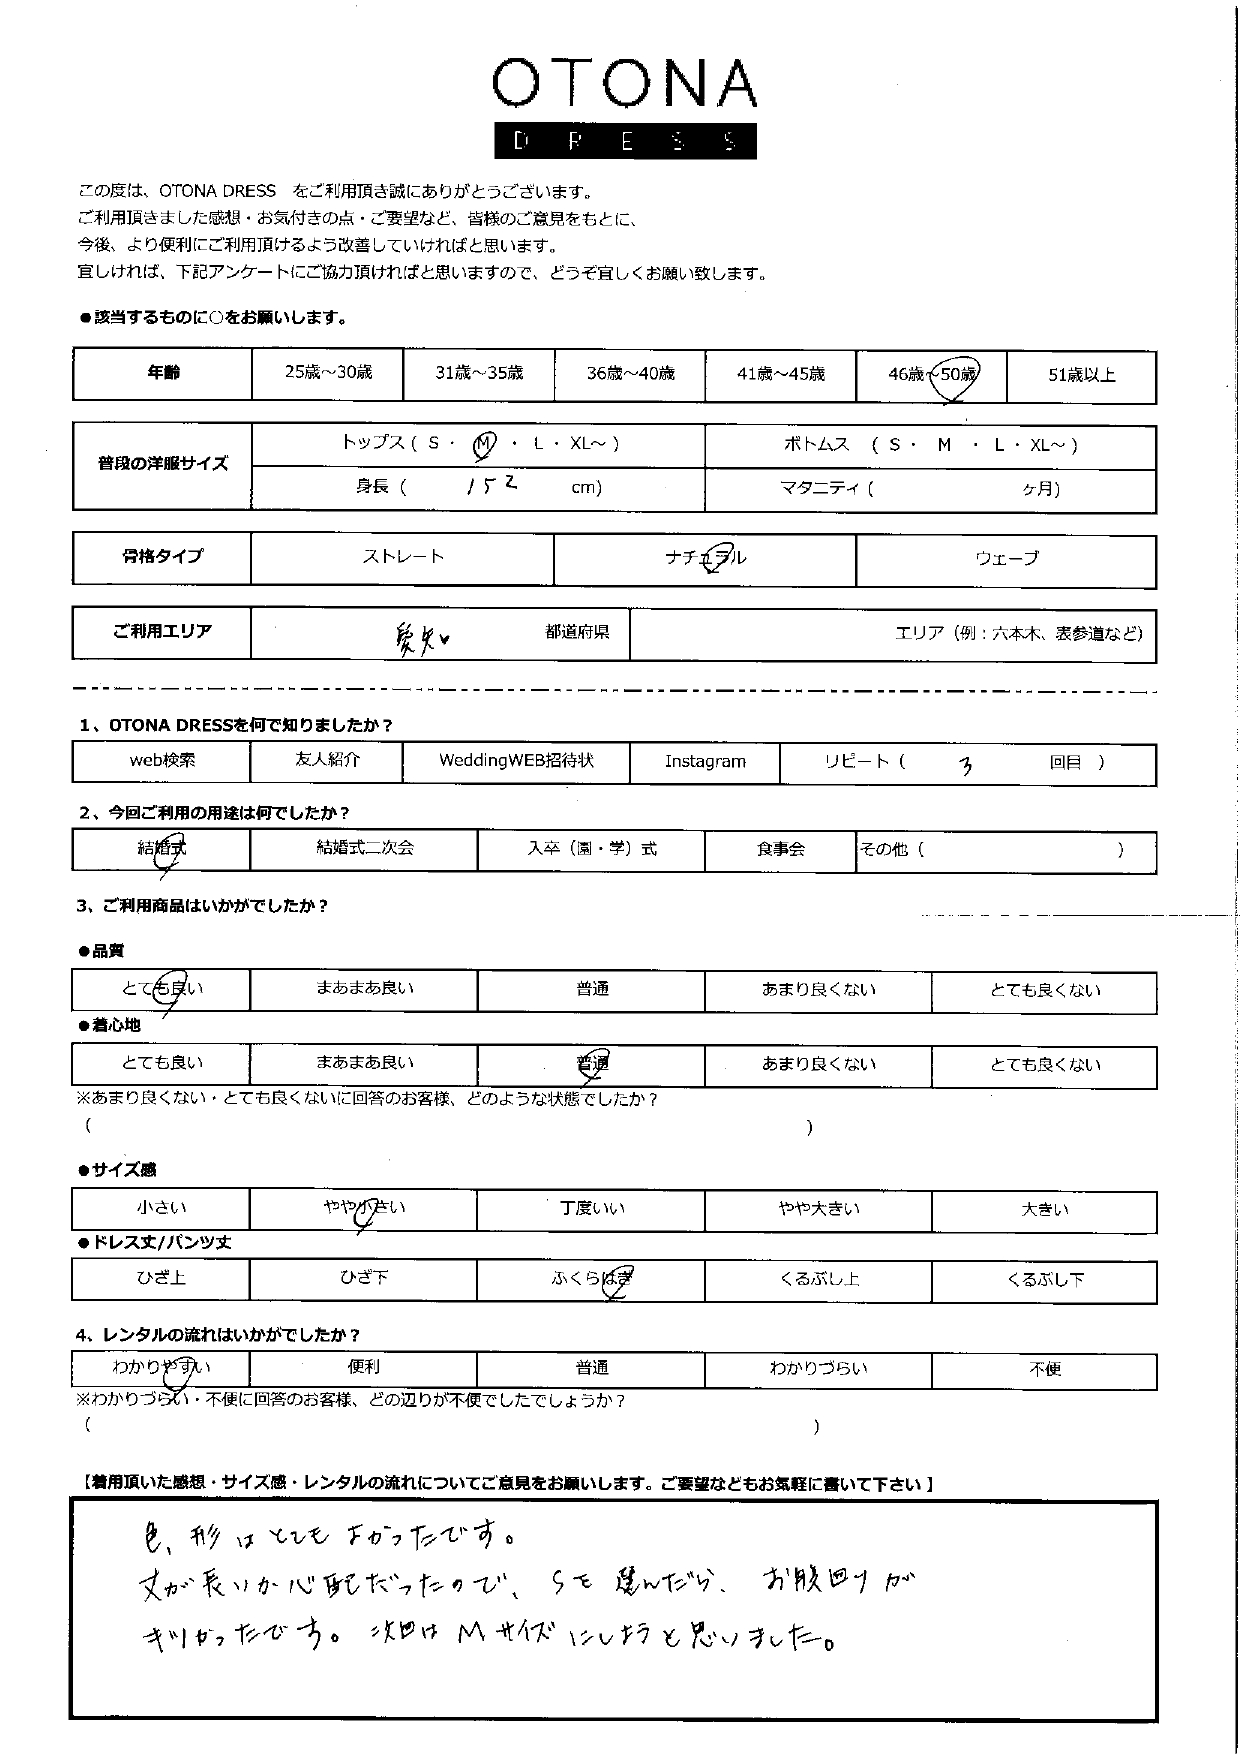 OTONA
DRESS
この度は、OTONA DRESS をご利用頂き誠にありがとうございます。
ご利用頂きました感想・お気付きの点・ご要望など、皆様のご意見をもとに、
今後、より便利にご利用頂けるよう改善していければと思います。
宜しければ、下記アンケートにご協力頂ければと思いますので、どうぞ宜しくお願い致します。
●該当するものに○をお願いします。
年齢 25歳～30歳 31歳～35歳 36歳～40歳 41歳～45歳 46歳～50歳 51歳以上
普段の洋服サイズ トップス ( S ・ M ・ L ・ XL～ ) ボトムス ( S ・ M ・ L ・ XL～ )
身長 ( 152 cm) マタニティ ( ヶ月)
骨格タイプ ストレート ナチュラル ウェーブ
ご利用エリア 愛知 都道府県 エリア（例：六本木、表参道など）
1、OTONA DRESSを何で知りましたか？
web検索 友人紹介 WeddingWEB招待状 Instagram リピート ( 3 回目 )
2、今回ご利用の用途は何でしたか？
結婚式 結婚式二次会 入卒（園・学）式 食事会 その他 ( )
3、ご利用商品はいかがでしたか？
●品質
とても良い まあまあ良い 普通 あまり良くない とても良くない
●着心地
とても良い まあまあ良い 普通 あまり良くない とても良くない
※あまり良くない・とても良くないに回答のお客様、どのような状態でしたか？
( )
●サイズ感
小さい やや小さい 丁度いい やや大きい 大きい
●ドレス丈/パンツ丈
ひざ上 ひざ下 ふくらはぎ くるぶし上 くるぶし下
4、レンタルの流れはいかがでしたか？
わかりやすい 便利 普通 わかりづらい 不便
※わかりづらい・不便に回答のお客様、どの辺りが不便でしたでしょうか？
( )
【着用頂いた感想・サイズ感・レンタルの流れについてご意見をお願いします。ご要望などもお気軽に書いて下さい】
色、形はとてもよかったです。
丈が長いか心配だったので、Sを選んだら、お腹回りが
キツかったです。次回はMサイズにしようと思いました。